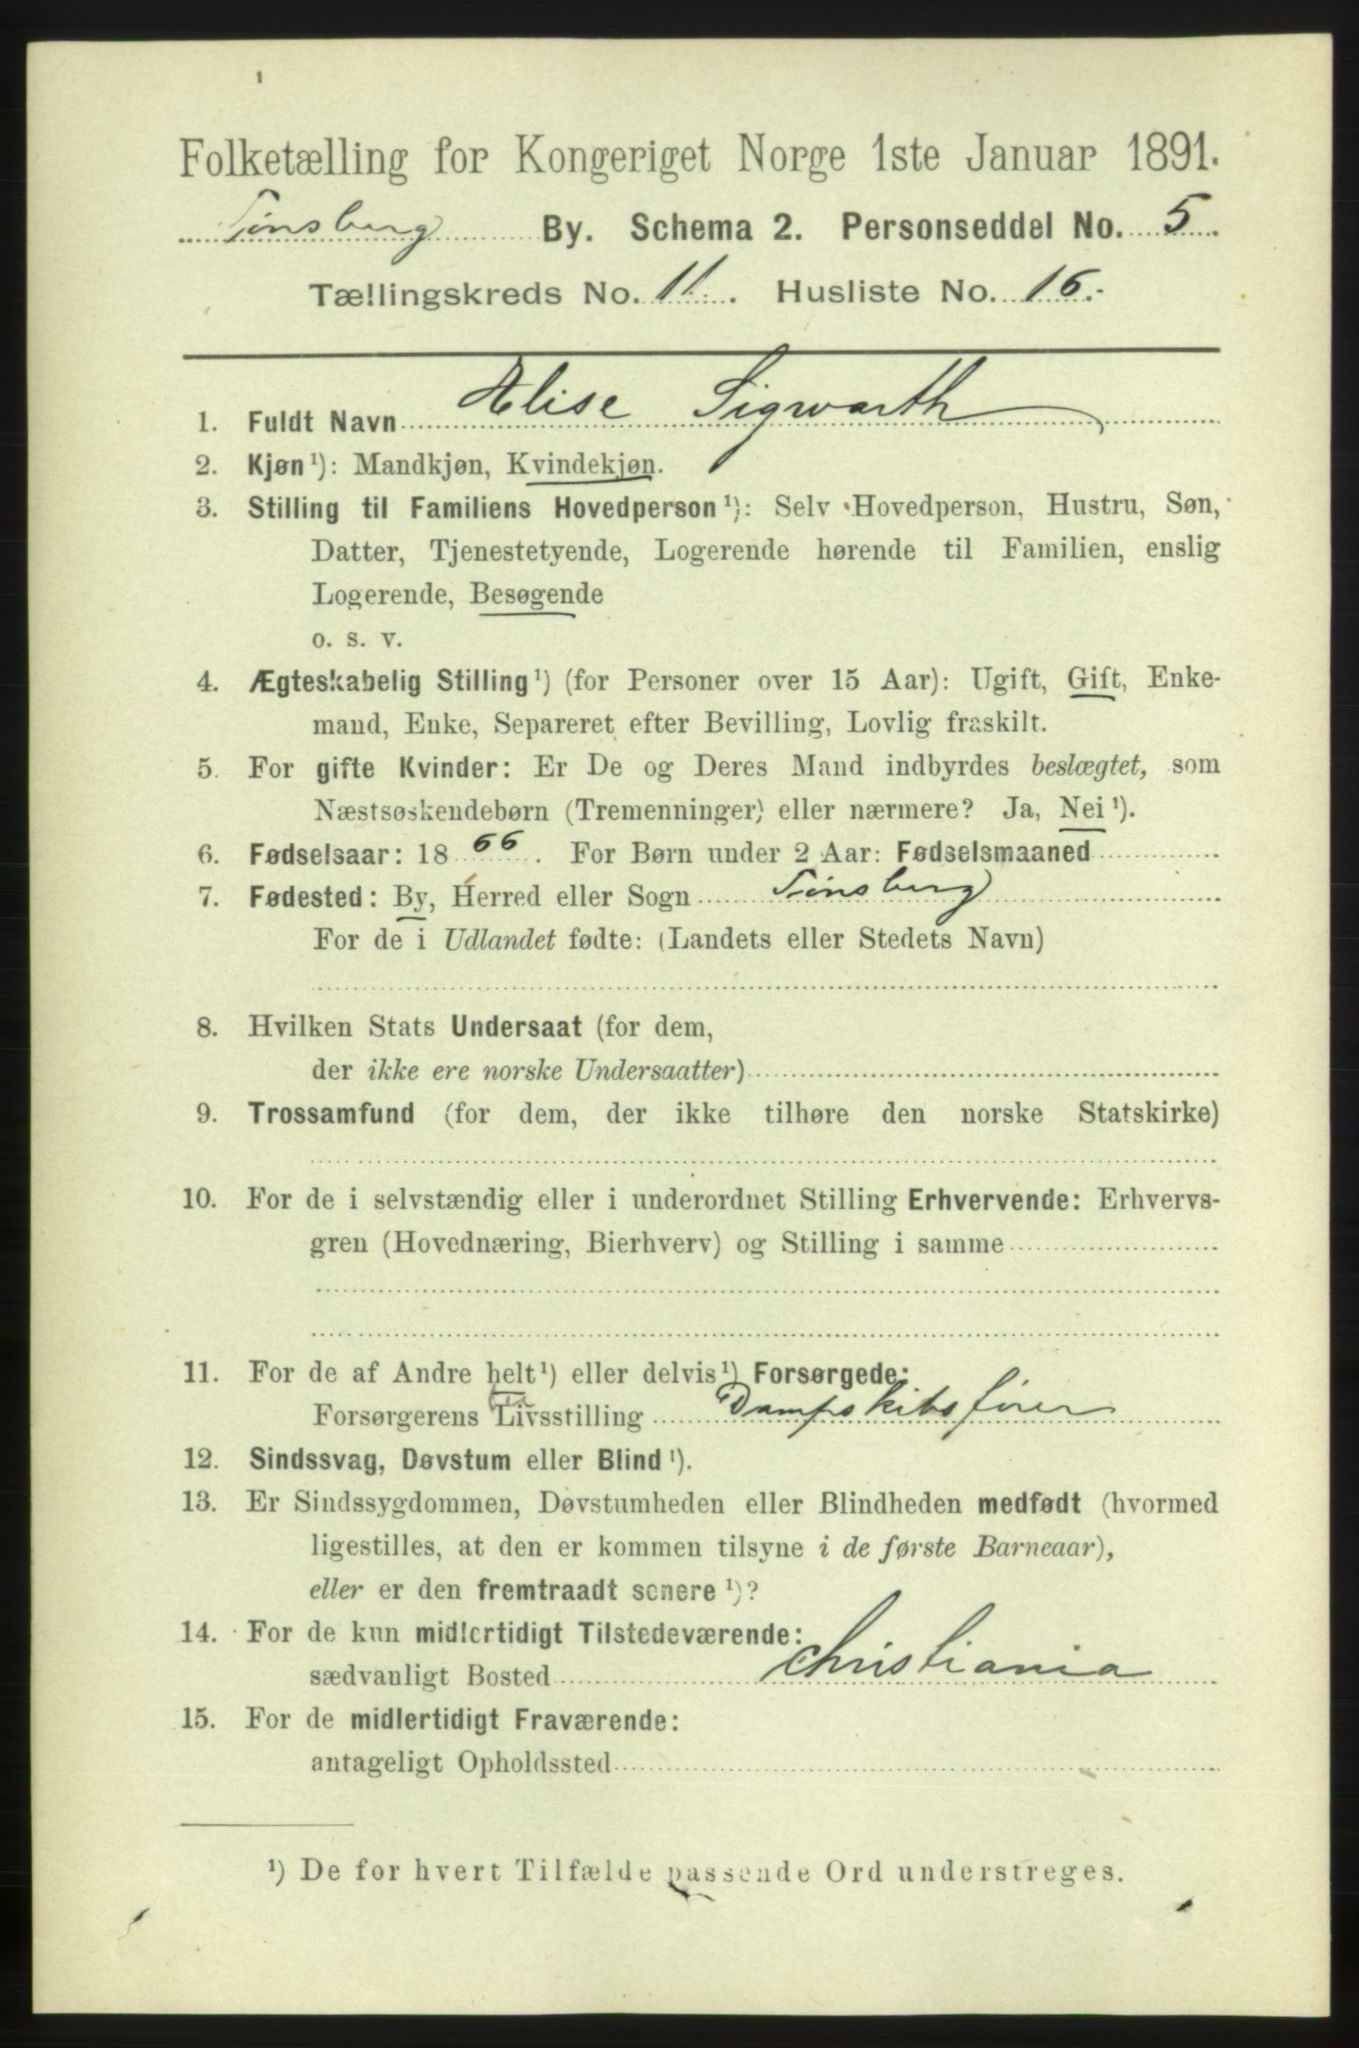 Folketælling for Kongeriget Norge 1ste Januar 1891.
Tønsberg By. Schema 2. Personseddel No. 5.
Tællingskreds No. 11. Husliste No. 16.
1. Fuldt Navn Elise Sigwarth
2. Kjøn¹): Mandkjøn, Kvindekjøn.
3. Stilling til Familiens Hovedperson¹): Selv Hovedperson, Hustru, Søn,
Datter, Tjenestetyende, Logerende hørende til Familien, enslig
Logerende, Besøgende
o. s. v.
4. Ægteskabelig Stilling¹) (for Personer over 15 Aar): Ugift, Gift, Enke-
mand, Enke, Separeret efter Bevilling, Lovlig fraskilt.
5. For gifte Kvinder: Er De og Deres Mand indbyrdes beslægtet, som
Næstsøskendebørn (Tremenninger) eller nærmere? Ja, Nei¹).
6. Fødselsaar: 1866. For Børn under 2 Aar: Fødselsmaaned
7. Fødested: By, Herred eller Sogn Tønsberg
For de i Udlandet fødte: (Landets eller Stedets Navn)
8. Hvilken Stats Undersaat (for dem,
der ikke ere norske Undersaatter)
9. Trossamfund (for dem, der ikke tilhøre den norske Statskirke)
10. For de i selvstændig eller i underordnet Stilling Erhvervende: Erhvervs-
gren (Hovednæring, Bierhverv) og Stilling i samme
11. For de af Andre helt¹) eller delvis¹) Forsørgede:
Forsørgerens Livsstilling Dampskibsfører
12. Sindssvag, Døvstum eller Blind¹).
13. Er Sindssygdommen, Døvstumheden eller Blindheden medfødt (hvormed
ligestilles, at den er kommen tilsyne i de første Barneaar),
eller er den fremtraadt senere¹)?
14. For de kun midlertidigt Tilstedeværende:
sædvanligt Bosted Christiania
15. For de midlertidigt Fraværende:
antageligt Opholdssted
¹) De for hvert Tilfælde passende Ord understreges.